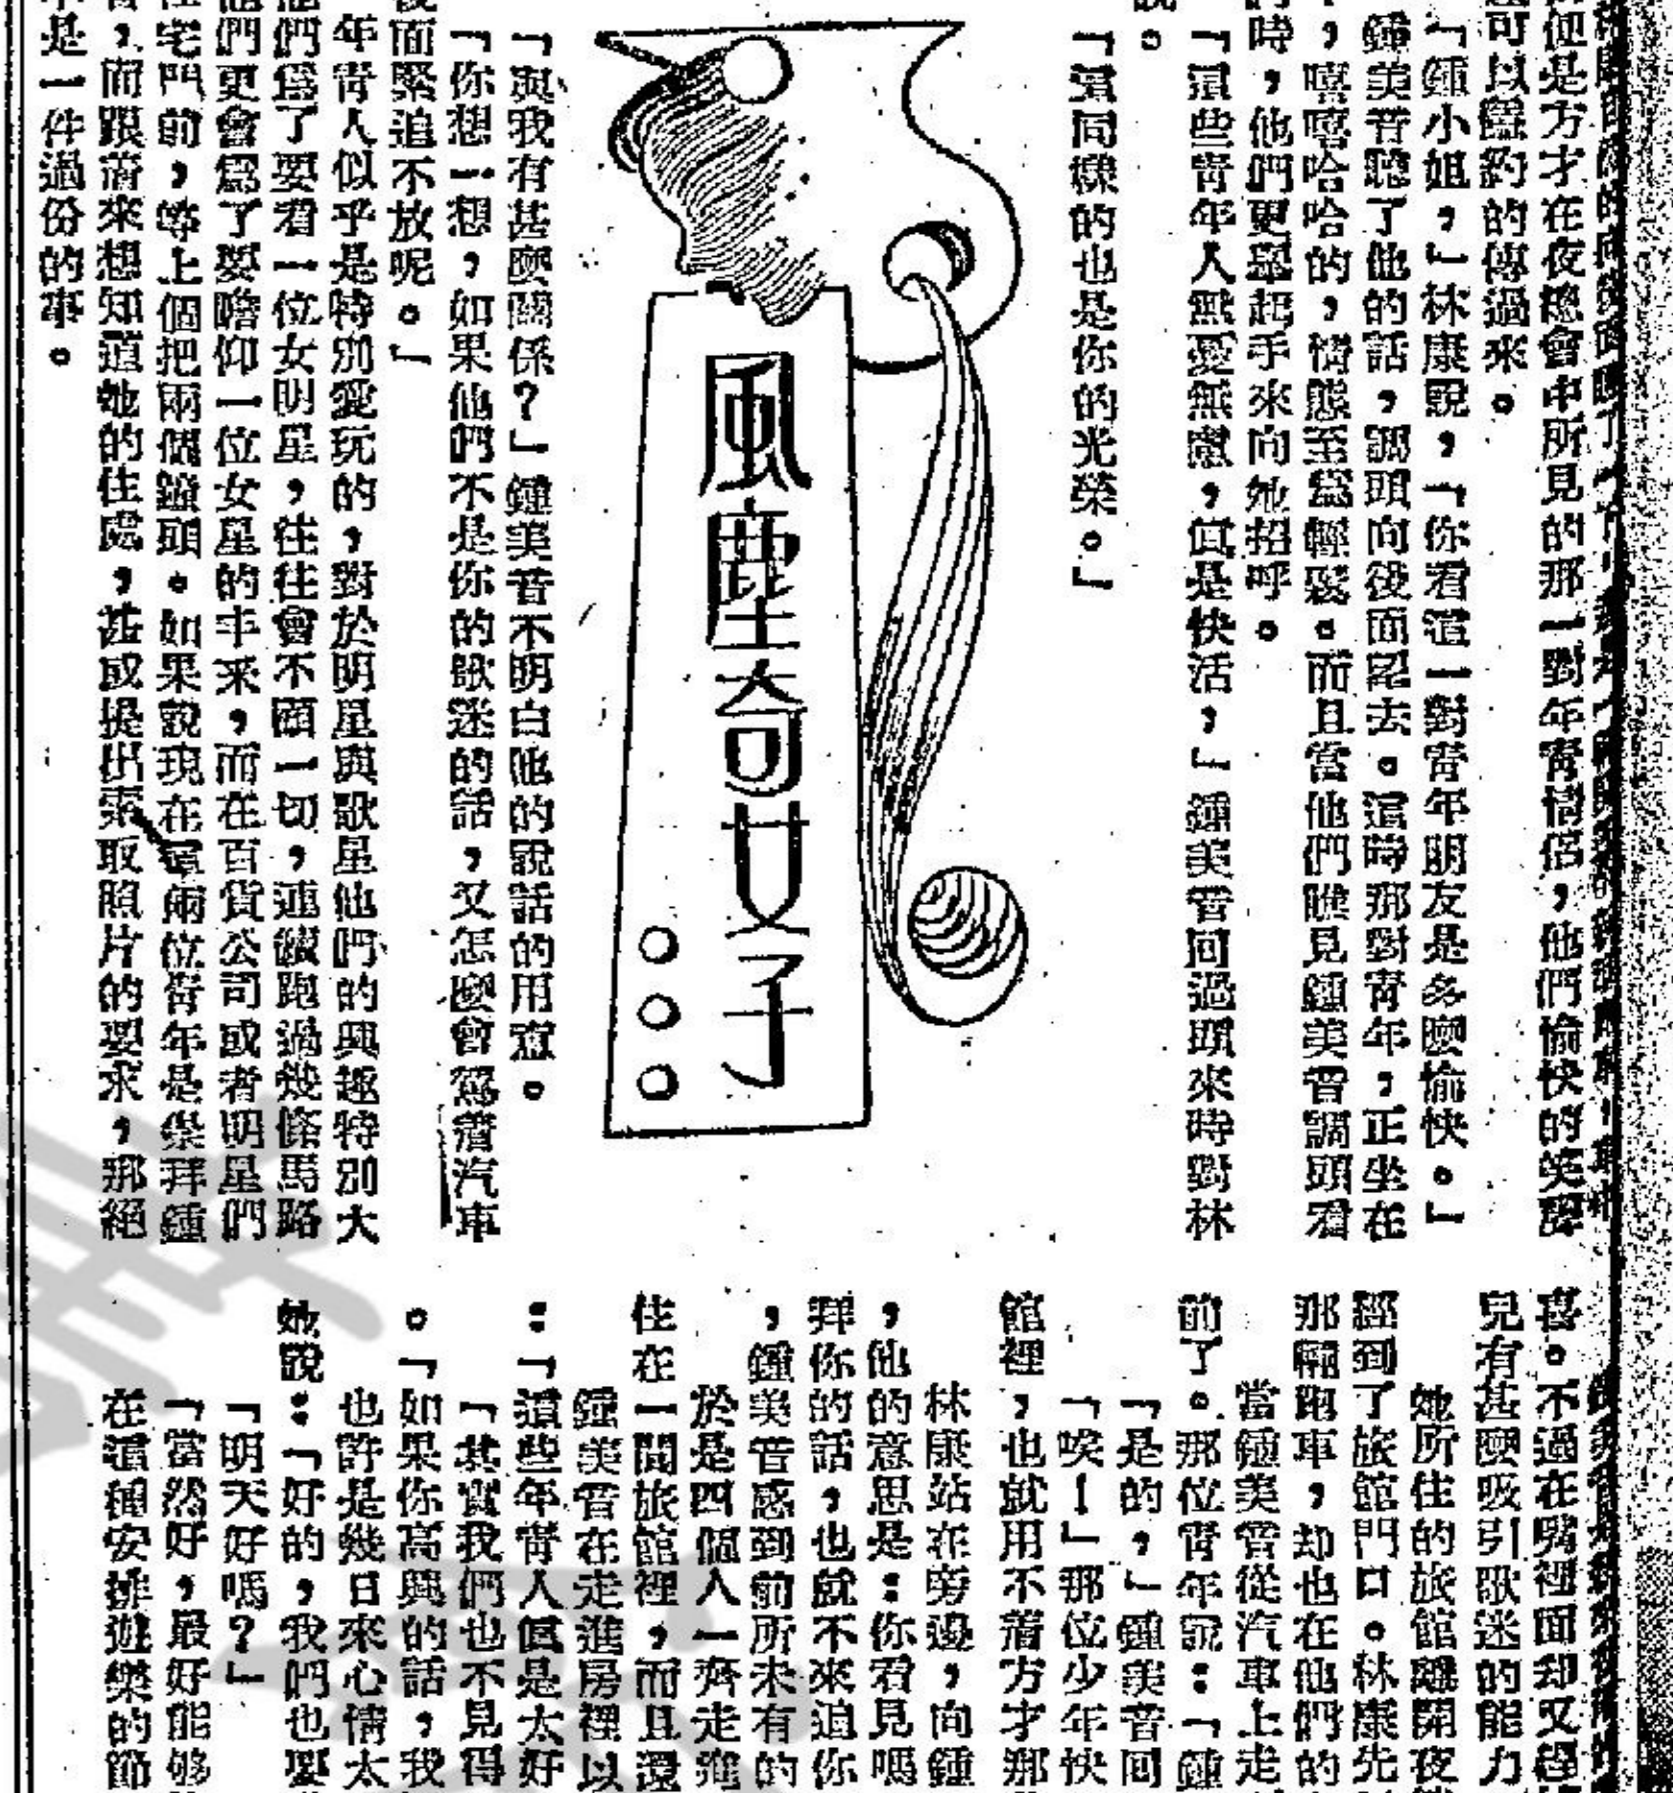 你便是方才在夜總會中所見的那一對年青情侶，他們愉快的笑
可以隱約的傳過來。
「鍾小姐，」林康說，「你看這一對青年朋友是多麼愉快。」
鍾美音聽了他的話，調頭向後面望去。這時那對青年，正坐在
，嘻嘻哈哈的，情態至為輕鬆。而且當他們瞧見鍾美音調頭看
時，他們更舉起手來向她招呼。
「這些青年人無憂無慮，真是快活，」鍾美音回過頭來時對林
說。
「這同樣的也是你的光榮。」
風塵奇女子
○○○
「與我有甚麼關係？」鍾美音不明白他的說話的用意。
「你想一想，如果他們不是你的歌迷的話，又怎麼會駕着汽車
後面緊追不放呢。」
年青人似乎是特別愛玩的，對於明星與歌星他們的興趣特別大
他們為了要看一位女明星，往往會不顧一切，連續跑過幾條馬路
他們更會為了要瞻仰一位女星的丰采，而在百貨公司或者明星們
住宅門前，等上個把兩個鐘頭。如果說現在這兩位青年是崇拜鍾
音，而跟着來想知道她的住處，甚或提出索取照片的要求，那絕
不是一件過份的事。
喜。不過在嘴裡面却又
兒有甚麼吸引歌迷的能力
她所住的旅館離開夜
經到了旅館門口。林康先
那輛跑車，却也在他們的
當鍾美音從汽車上走
前了。那位青年說：「鍾
「是的，」鍾美音回
「唉！」那位少年快
館裡，也就用不着方才那
林康站在旁邊，向鍾
，他的意思是：你看見嗎
拜你的話，也就不來追你
，鍾美音感到前所未有的
於是四個人一齊走進
住在一間旅館裡，而且還
鍾美音在走進房裡以
：「這些年青人真是太好
「其實我們也不見得
。「如果你高興的話，我
也許是幾日來心情太
她說：「好的，我們也要
「明天好嗎？」
「當然好，最好能够
在這種安排遊樂的節